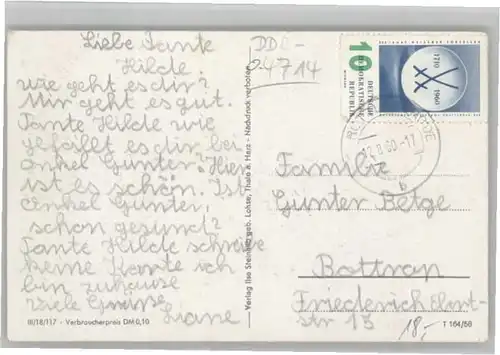 Liebe Tante
Hilde
wie geht es dir?
Mir geht es gut.
Tante Hilde wie
gefällt es dir bei
onkel Günter? Hier
ist es schön. Ist
Onkel Günter,
schon gesund?
Tante Hilde schreibe
keine Karte ich
bin zuhause
viele Grüsse
III/18/117 - Verbraucherpreis DM 0,10
DDR-
04714
Verlag Ilse Steinbiß geb. Lohse, Thale a. Harz - Nachdruck verboten
10
DEUTSCHE
DEMOKRATISCHE
REPUBLIK
1710
1960
-17
b
Familie
Günter Betge
Bottrop
Friederich Ebert-
str 15
18,-
T 164/58